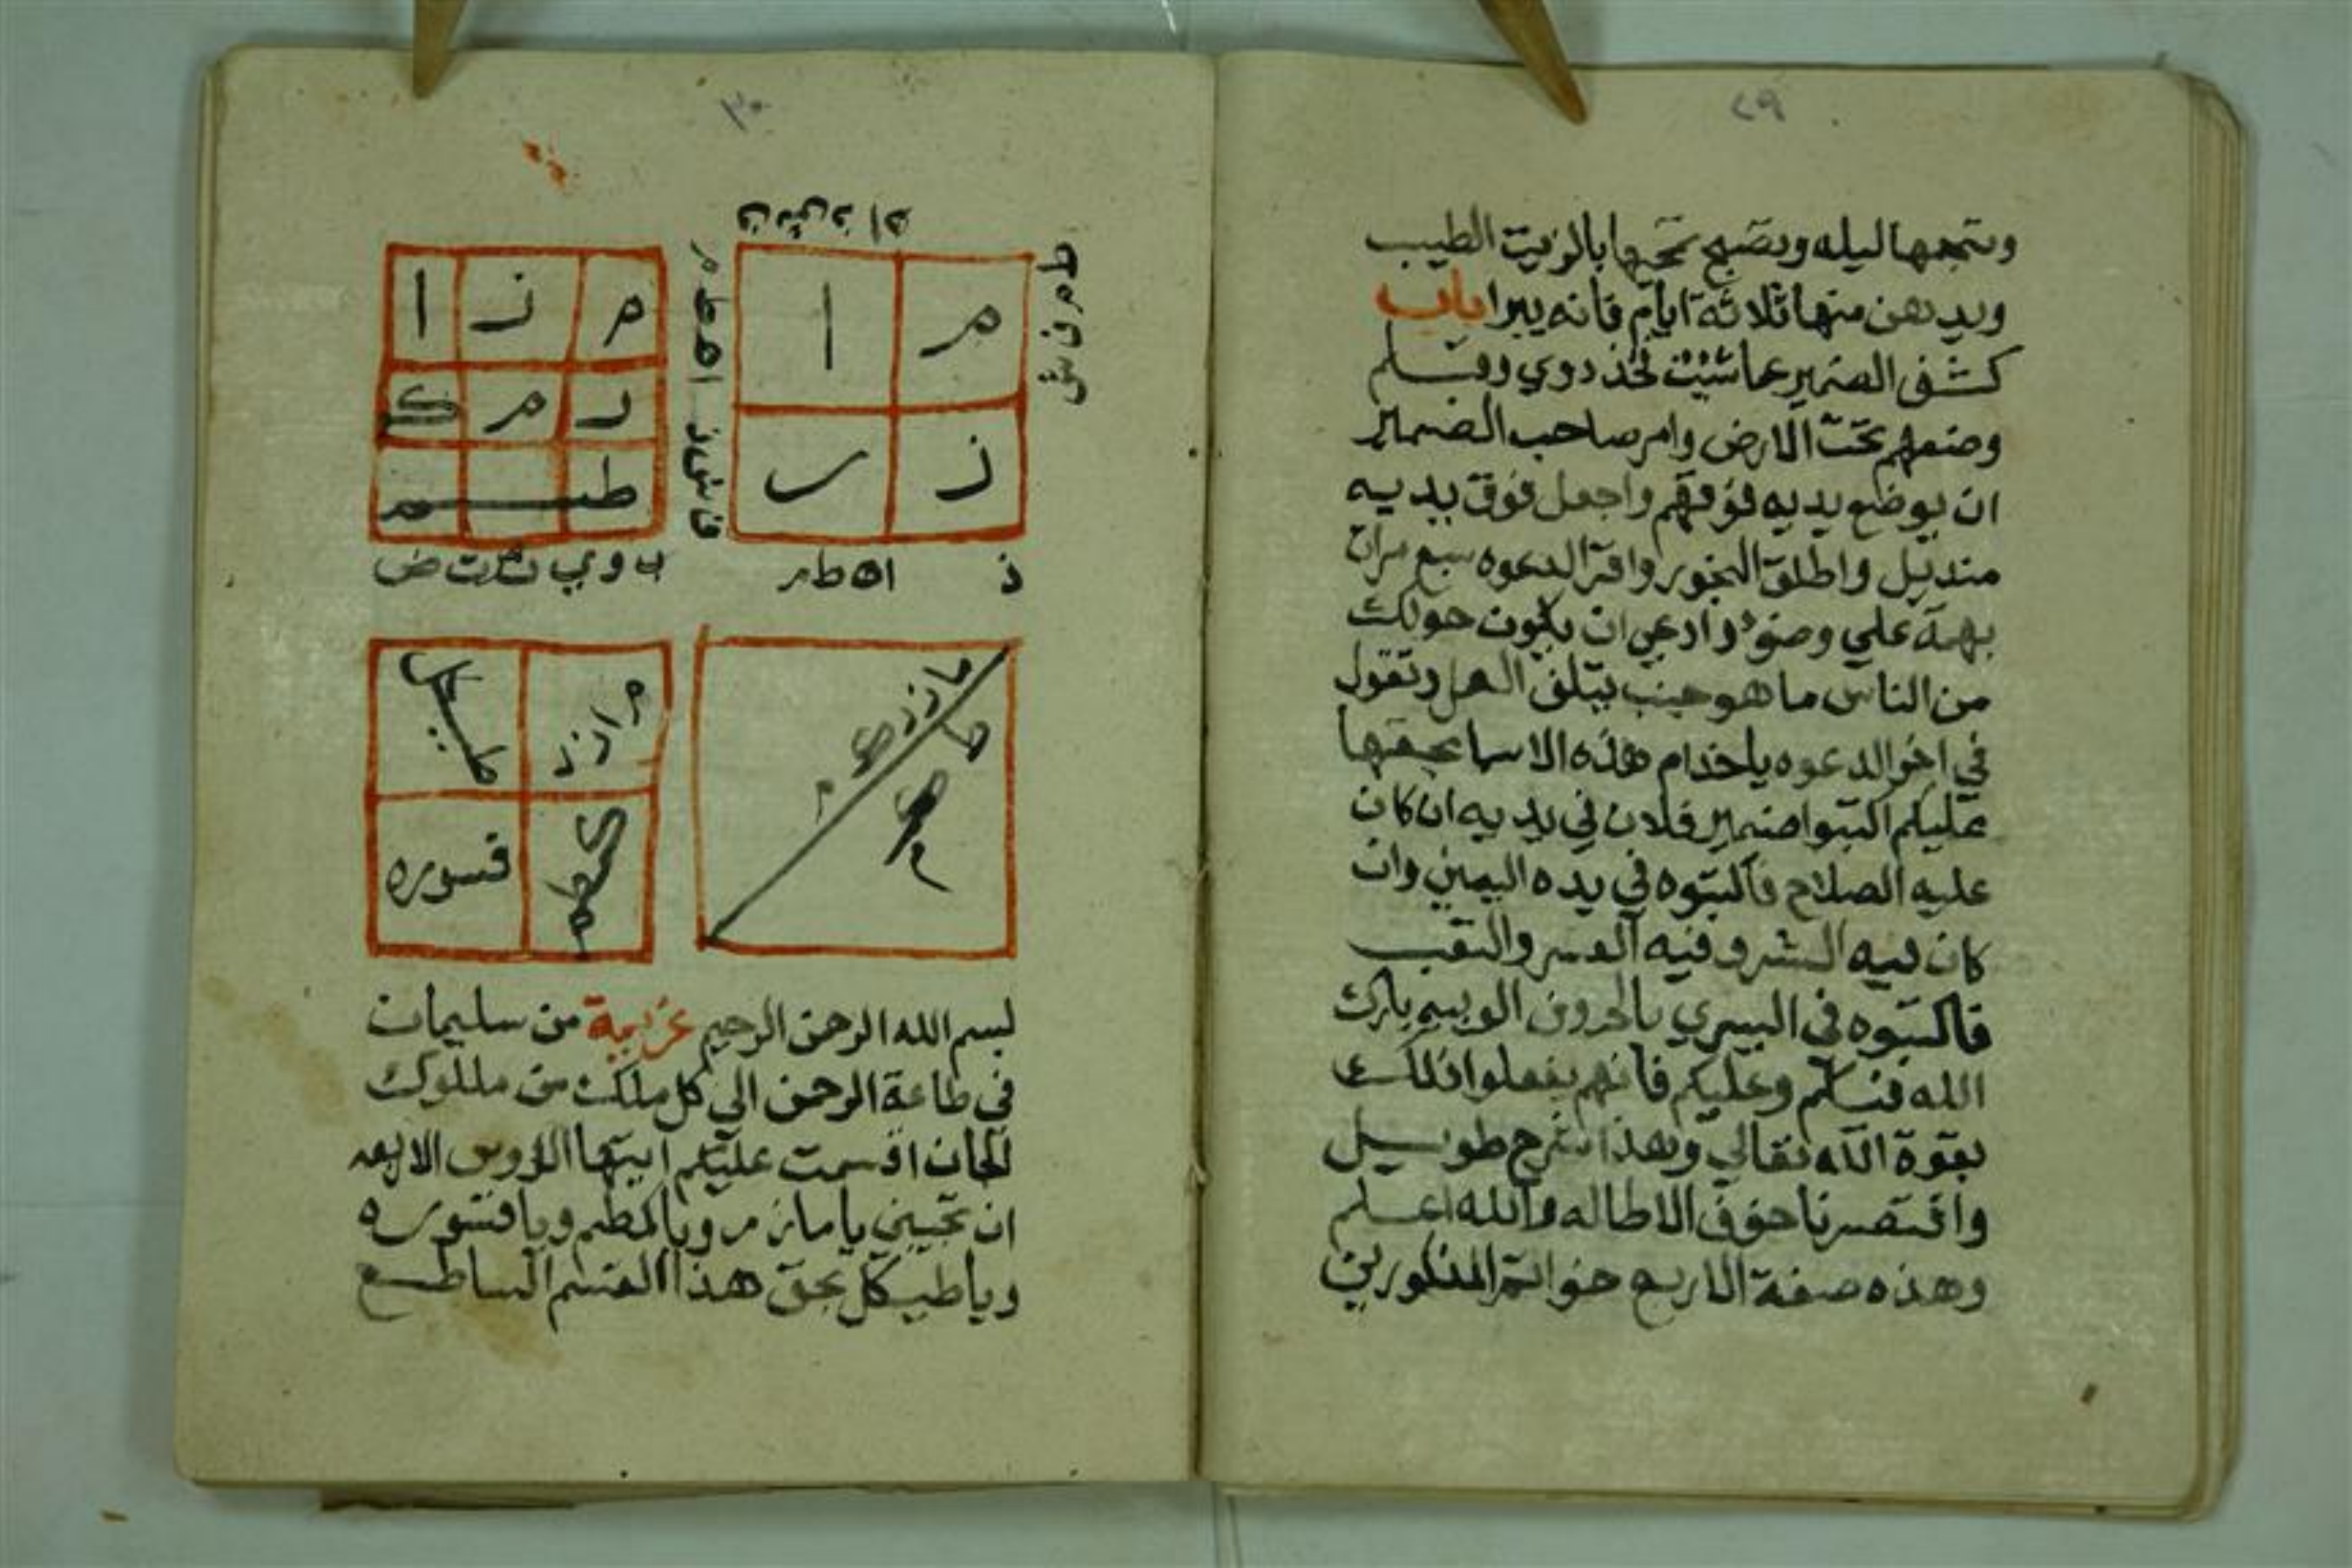 ٢٩
وينجمها ليله ويصبح يمحيها بالزيت الطيب
ويدهن منها ثلاثة ايام فانه يبرا باب
كشف الضمير عما شيت تخذ دوي وقلم
وضعهم تحت الارض وامر صاحب الضمير
ان يوضع يديه فوقهم واجعل فوق يديه
منديل واطلق البخور واقرا الدعوه سبع مرات
بهمة علي وضوء واوعي ان يكون حولك
من الناس ما هو جنب يتلف العمل وتقول
في اخر الدعوه يا خدام هذه الاسما بحقها
عليكم اكتبوا ضمير فلان في يديه ان كان
عليه الصلاح فاكتبوه في يده اليمين وان
كان فيه الشر وفيه العسر والتعب
فاكتبوه في اليسري بالحروف بارك
الله فيكم وعليكم فانهم يفعلوا ذلك
بقوة الله تعالي وهذا شرح طويل
واقتصرنا خوف الاطاله والله اعلم
وهذه صفة الاربع خواتم المذكورين
٣٠
م ا
ز ر
م ز ا
ر م ك
طـــم
م ا ز ر
قسوره
بسم الله الرحمن الرحيم عزيمة من سليمان
في طاعة الرحمن الي كل ملك من ملوك
الجان اقسمت عليكم ايتها الاربعه
ان تجيبني يا مازر ويا كمطم ويا قسوره
ويا طيكل بحق هذا القسم الساطع